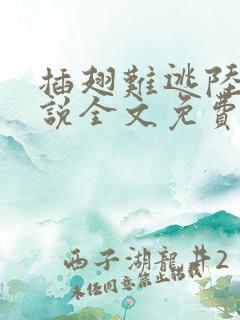 插翅難逃陸
說全文免費
西子湖龍井2
未任同意禁止轉載